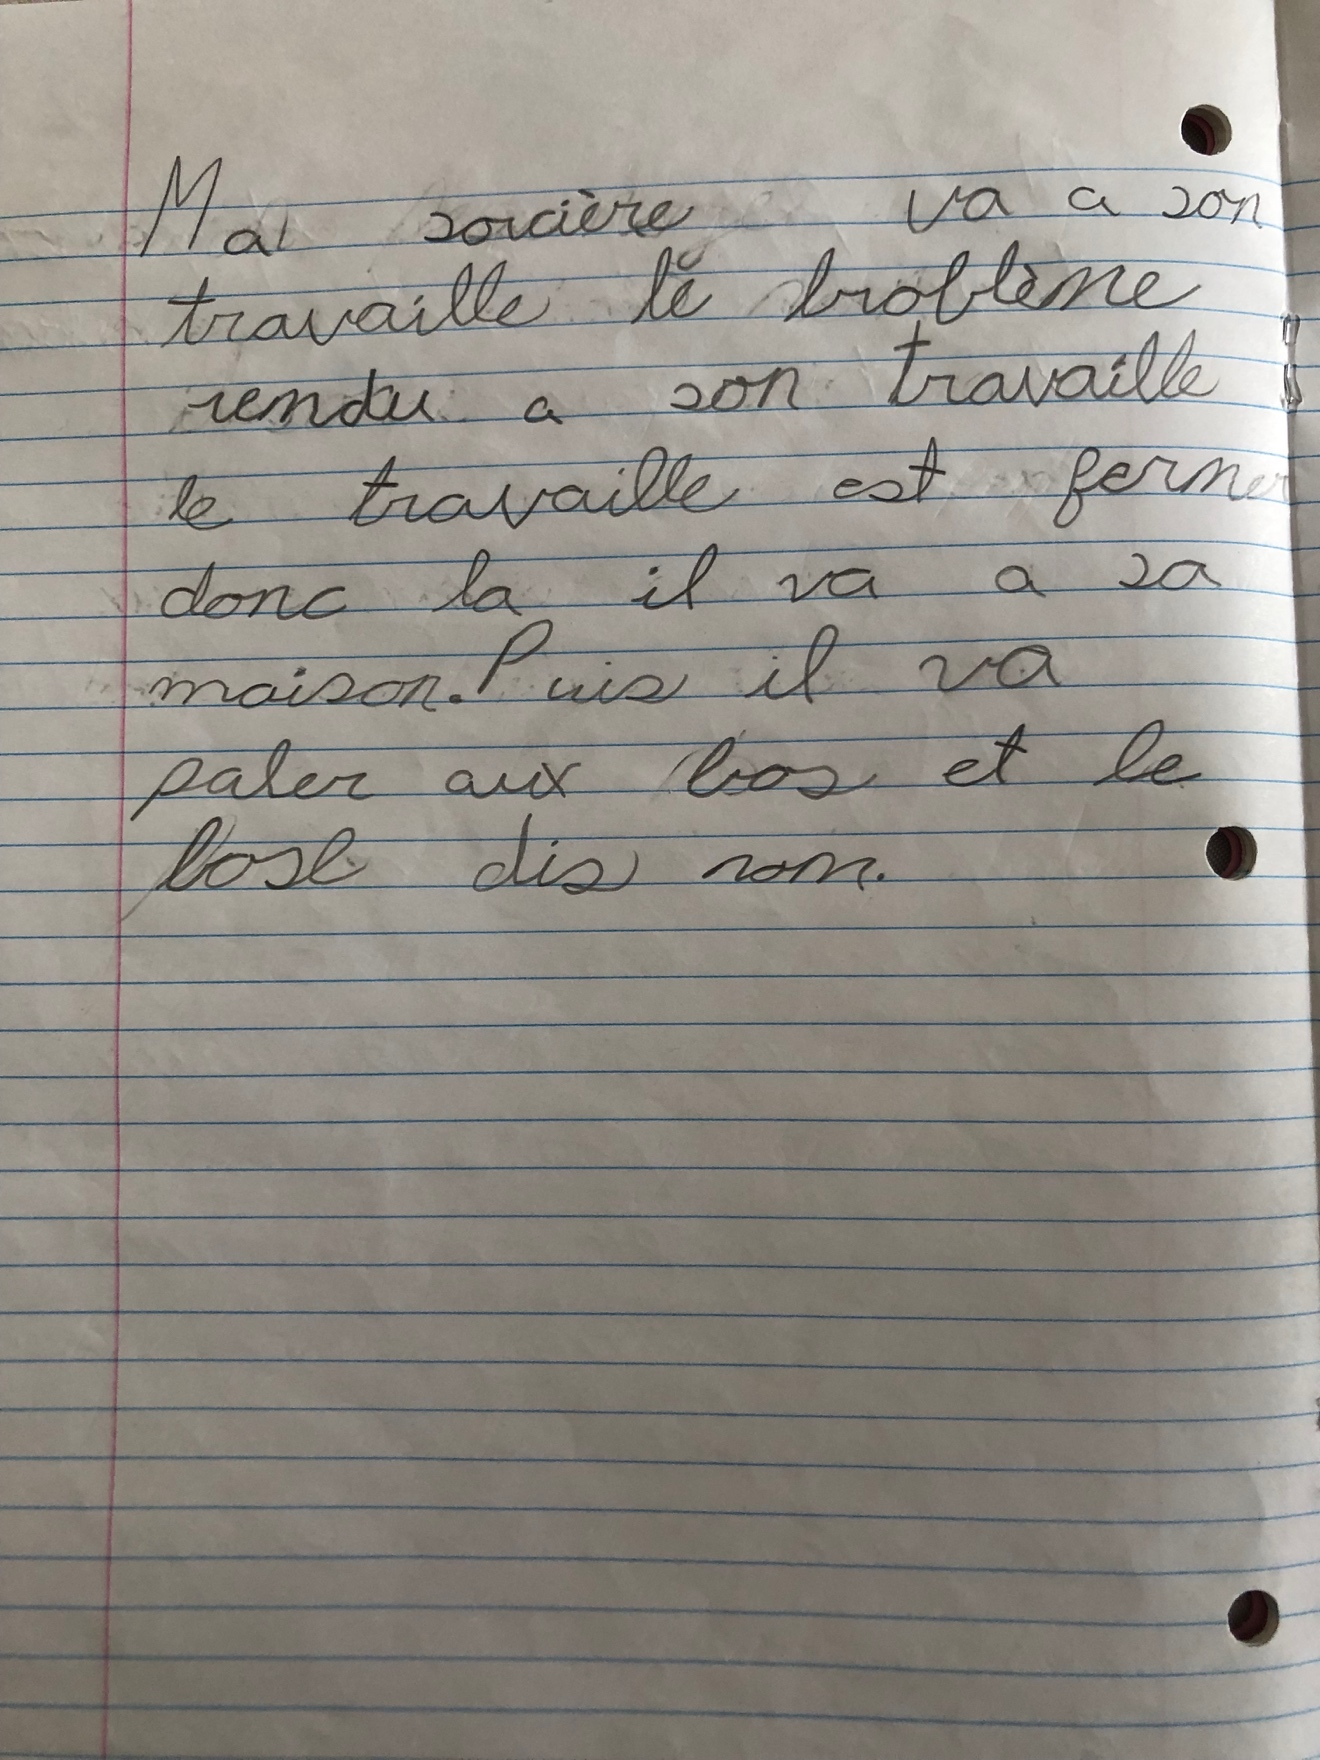 Ma sorcière va a son
travaille le broblème
rendu a son travaille
le travaille est fermer
donc la il va a sa
maison. Puis il va
paler aux bos et le
bose dis non.